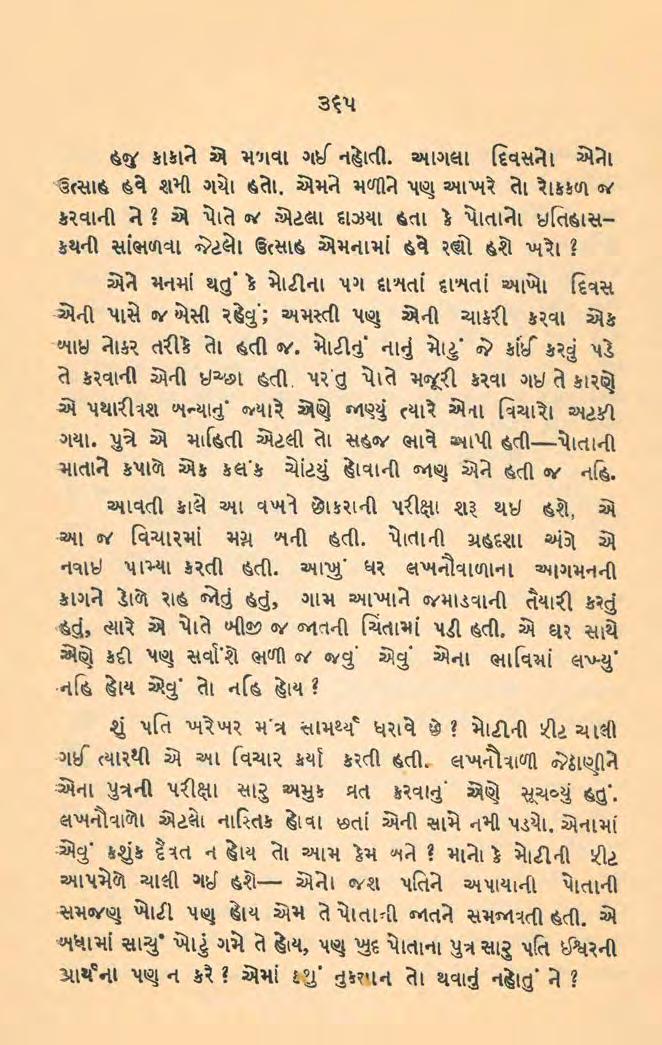 ૩૬૫
હજુ કાકાને એ મળવા ગઈ નહોતી. આગલા દિવસનો એનો
ઉત્સાહ હવે શમી ગયો હતો. એમને મળીને પણ આખરે તો રોકકળ જ
કરવાની ને ? એ પોતે જ એટલા દાઝયા હતા કે પોતાનો ઇતિહાસ–
કથની સાંભળવા જેટલો ઉત્સાહ એમનામાં હવે રહ્યો હશે ખરો ?
એને મનમાં થતું કે મોટીના પગ દાબતાં દાબતાં આખો દિવસ
એની પાસે જ બેસી રહેવું; અમસ્તી પણ એની ચાકરી કરવા એક
બાઇ નોકર તરીકે તો હતી જ. મોટીનું નાનું મોટું જે કાંઈ કરવું પડે
તે કરવાની એની ઇચ્છા હતી. પરંતુ પોતે મજૂરી કરવા ગઇ તે કારણે
એ પથારીવશ બન્યાનું જ્યારે એણે જાણ્યું ત્યારે એના વિચારો અટકી
ગયા. પુત્રે એ માહિતી એટલી તો સહજ ભાવે આપી હતી—પોતાની
માતાને કપાળે એક કલંક ચોંટયું હોવાની જાણ એને હતી જ નહિ.
આવતી કાલે આ વખતે છોકરાની પરીક્ષા શરૂ થઇ હશે, એ
આ જ વિચારમાં મગ્ન બની હતી. પોતાની ગ્રહદશા અંગે એ
નવાઇ પામ્યા કરતી હતી. આખું ઘર લખનૌવાળાના આગમનની
કાગને ડોળે રાહ જોતું હતું, ગામ આખાને જમાડવાની તૈયારી કરતું
હતું, ત્યારે એ પોતે બીજી જ જાતની ચિંતામાં પડી હતી. એ ઘર સાથે
એણે કદી પણ સર્વાંશે ભળી જ જવું એવું એના ભાવિમાં લખ્યું
નહિ હોય એવું તો નહિ હોય ?
શું પતિ ખરેખર મંત્ર સામર્થ્ય ધરાવે છે ? મોટીની ફીટ ચાલી
ગઈ ત્યારથી એ આ વિચાર કર્યા કરતી હતી. લખનૌવાળી જેઠાણીને
એના પુત્રની પરીક્ષા સારુ અમુક વ્રત કરવાનું એણે સૂચવ્યું હતું.
લખનૌવાળો એટલો નાસ્તિક હોવા છતાં એની સામે નમી પડયો. એનામાં
એવું કશુંક દૈવત ન હોય તો આમ કેમ બને ? માનો કે મોટીની ફીટ
આપમેળે ચાલી ગઈ હશે— એનો જશ પતિને અપાયાની પોતાની
સમજણ ખોટી પણ હોય એમ તે પોતાની જાતને સમજાવતી હતી. એ
બધામાં સાચું ખોટું ગમે તે હોય, પણ ખુદ પોતાના પુત્ર સારુ પતિ ઈશ્વરની
પ્રાર્થના પણ ન કરે ? એમાં કશું નુકસાન તો થવાનું નહોતું ને ?